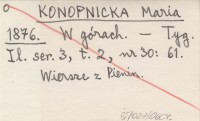 KONOPNICKA Maria
1876. W górach. — Tyg.
Il. ser. 3, t. 2, nr 30: 61.
Wiersze z Pienin.